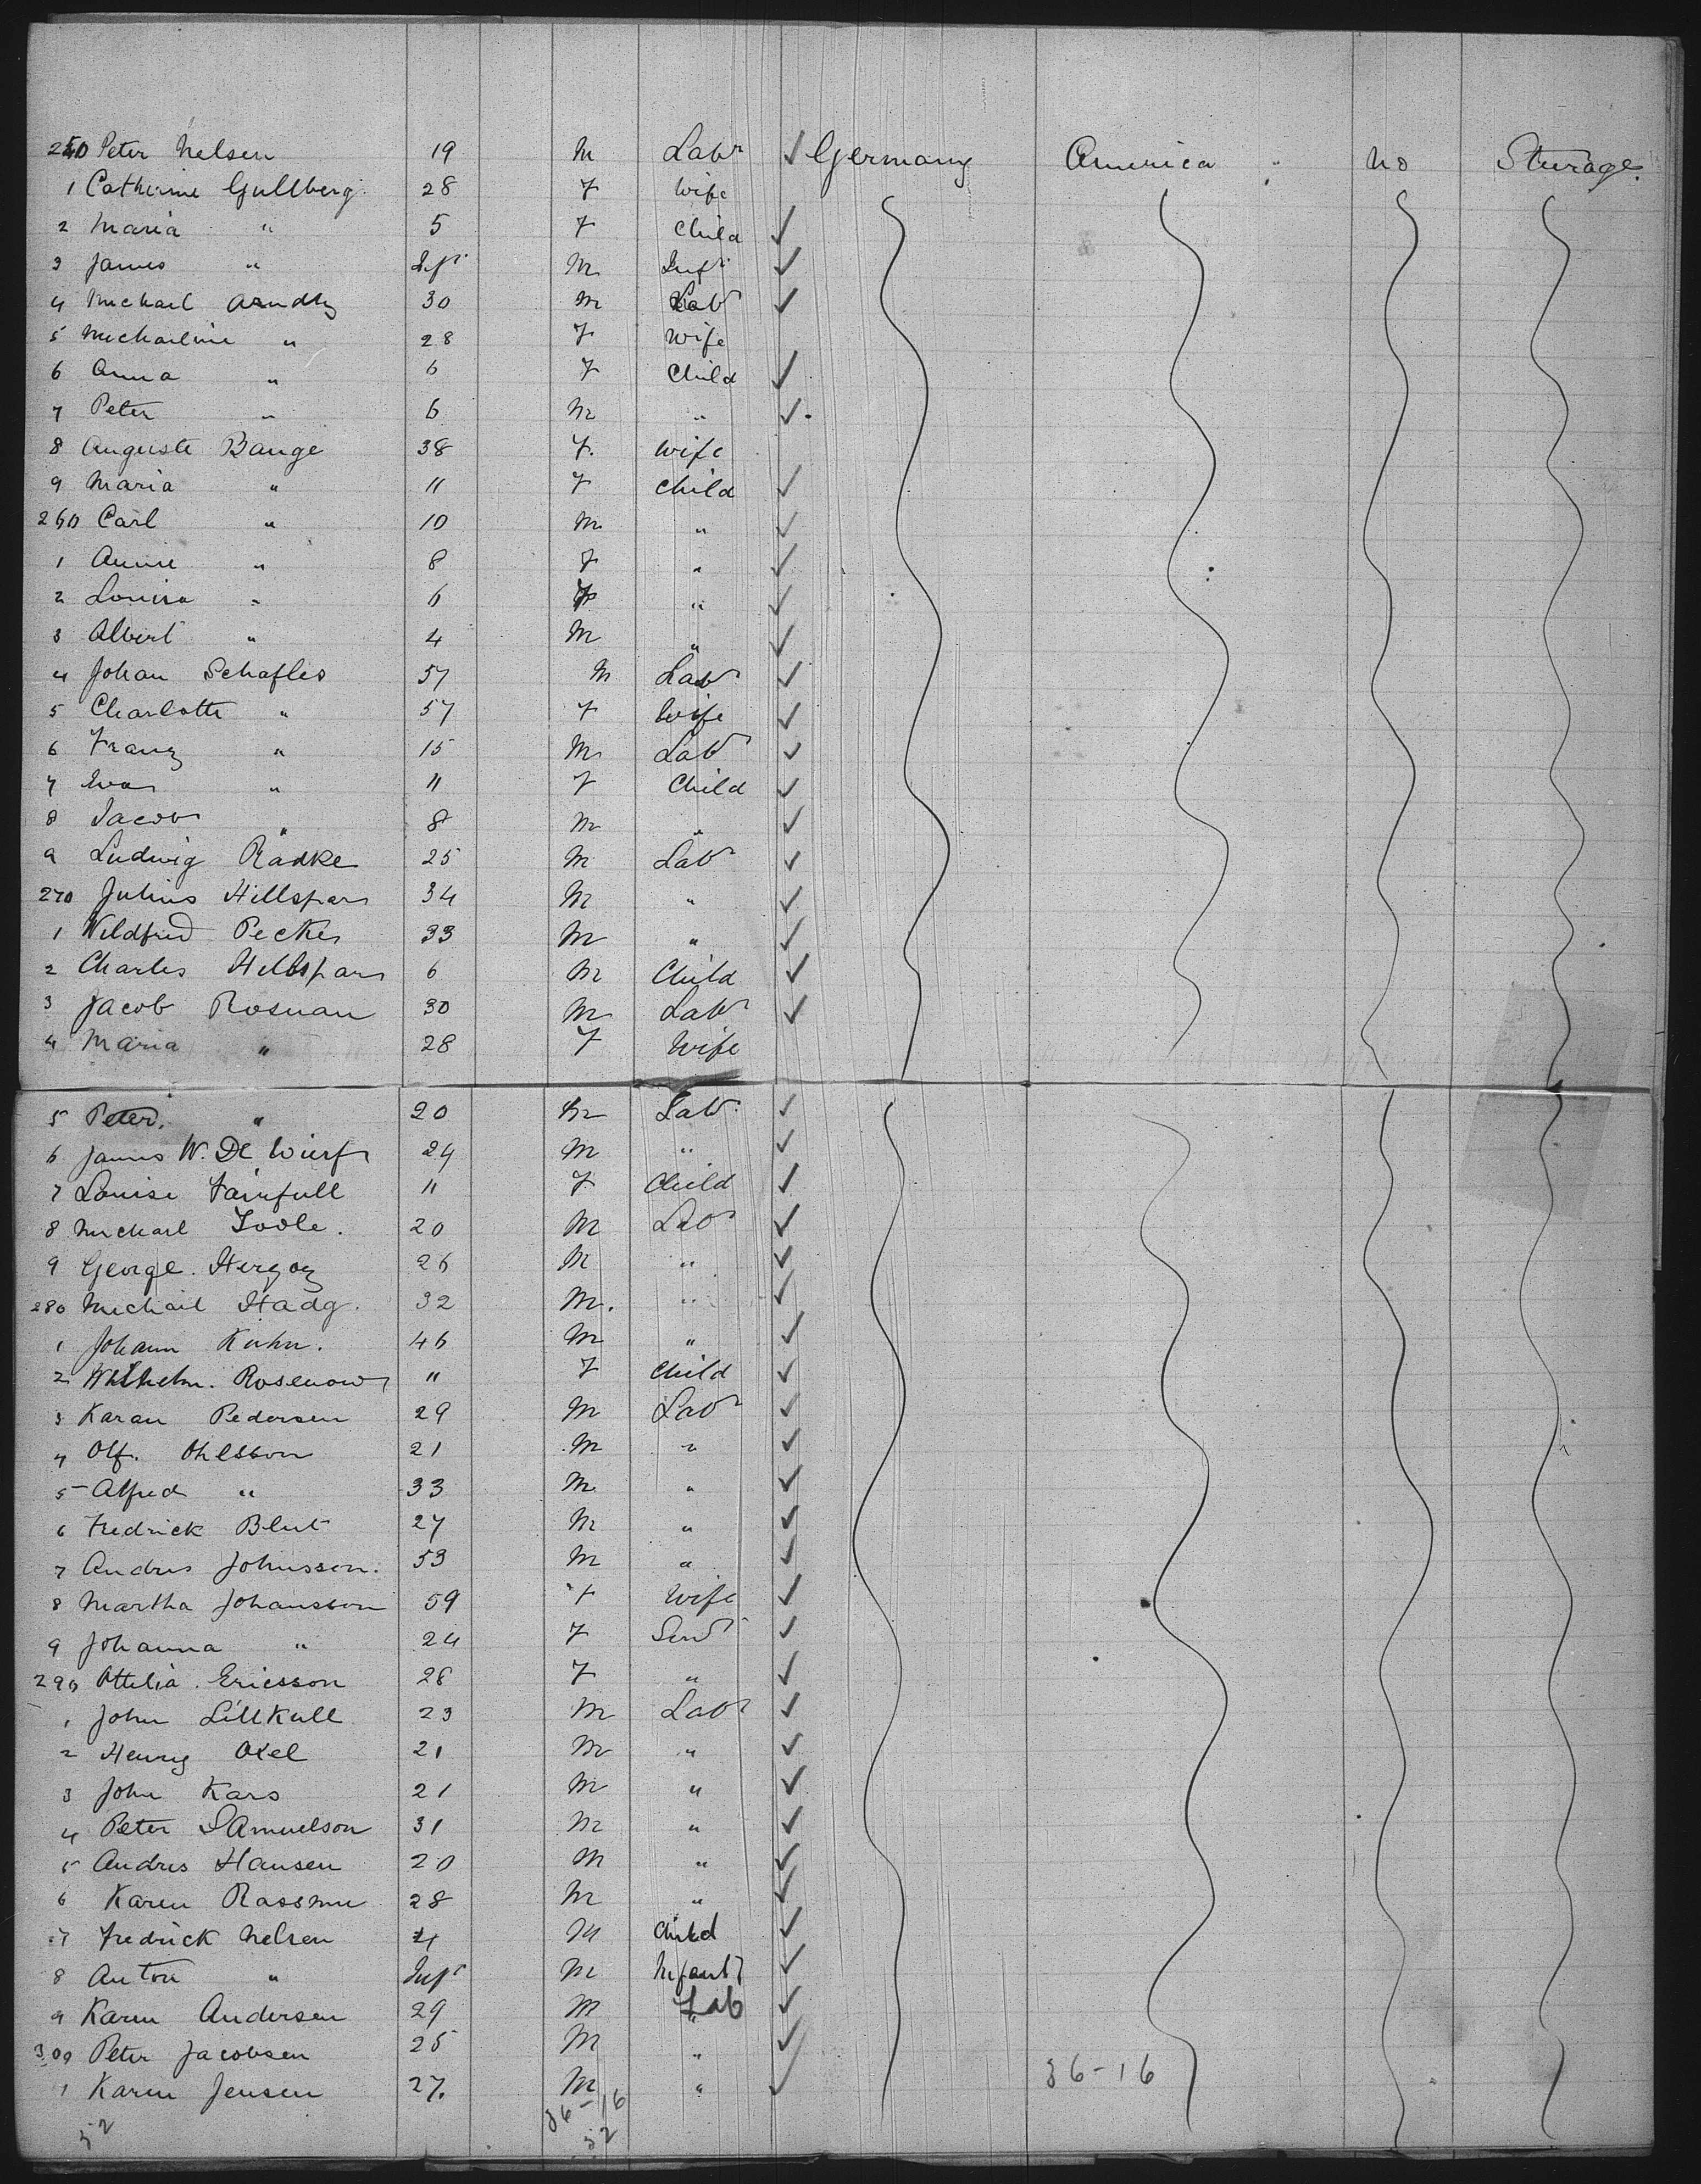 250 Peter Nelsen 19 M Labr ✓ Germany America No Sturage.
1 Catherine Gullberg 28 F Wife
2 Maria " 5 F Child ✓
3 James " Inft M Inft ✓
4 Michael Arndtz 30 M Labr ✓
5 Michaeline " 28 F Wife
6 Anna " 6 F Child ✓
7 Peter " 6 M " ✓
8 Auguste Bange 38 F. Wife
9 Maria " 11 F Child ✓
260 Carl " 10 M " ✓
1 Annie " 8 F " ✓
2 Louisa " 6 F " ✓
3 Albert " 4 M " ✓
4 Johan Schafles 57 M Labr ✓
5 Charlotte " 57 F Wife ✓
6 Franz " 15 M Labr ✓
7 Eva " 11 F Child ✓
8 Jacob " 8 M " ✓
9 Ludwig Radke 25 M Labr ✓
270 Julius Hillspars 34 M " ✓
1 Wildfred Pecker 33 M " ✓
2 Charles Hillspars 6 M Child ✓
3 Jacob Rosnau 30 M Labr ✓
4 Maria " 28 F Wife
5 Peter. " 20 M Labr ✓
6 James W. De 24 M " ✓
7 Louise Fairfull 11 F Child ✓
8 Michael Toole. 20 M Labr ✓
9 George Herzog 26 M " ✓
280 Michail Hadg. 32 M. " ✓
1 Johann Kuhn. 46 M " ✓
2 Wilhelm. Rosenow 11 F Child ✓
3 Karan Pedersen 29 M Labr ✓
4 Olf. Ohlsson 21 M " ✓
5 Alfred " 33 M " ✓
6 Fredrick Blut 27 M " ✓
7 Andres Johnsson. 53 M " ✓
8 Martha Johansson 59 F Wife ✓
9 Johanna " 24 F Servt ✓
290 Ottelia Ericsson 28 F " ✓
1 John Lillkull 23 M Labr ✓
2 Henry Oxel 21 M " ✓
3 John Kars 21 M " ✓
4 Peter Samuelson 31 M " ✓
5 Andres Hansen 20 M " ✓
6 Karen Rassmu 28 M " ✓
7 Fredrick Nelsen 4 M Child ✓
8 Anton " Inft M Infant ✓
9 Karen Andersen 29 M Lab ✓
300 Peter Jacobsen 25 M " ✓
1 Karen Jensen 27. M " ✓ 36-16
52 36-16
52